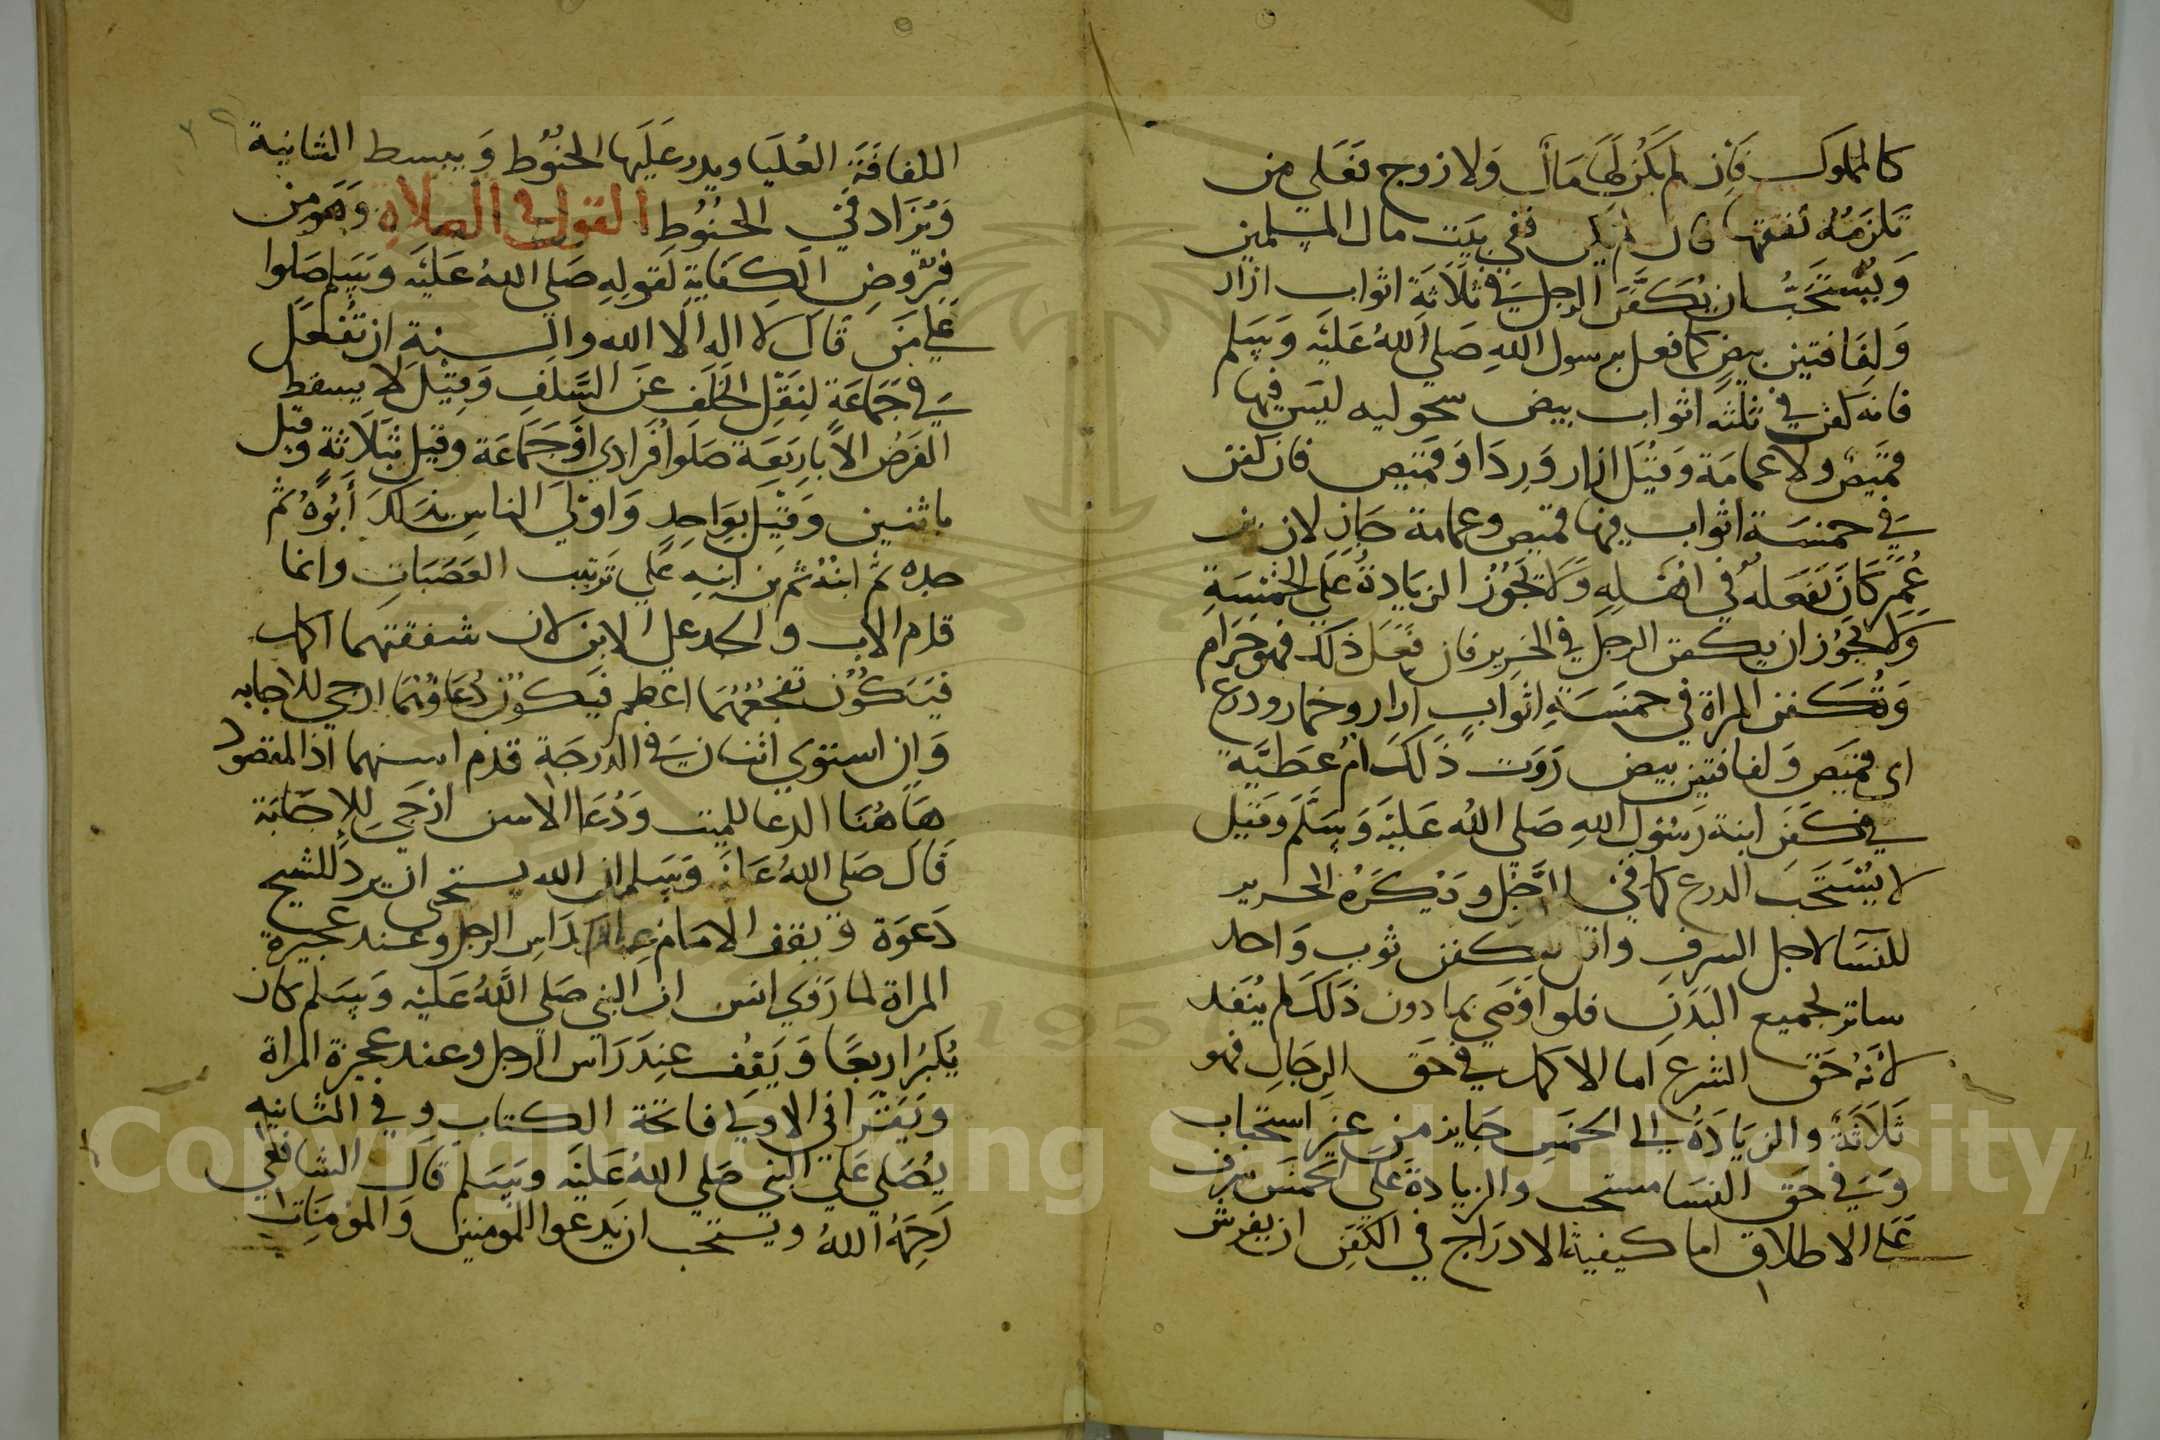 كالمملوك فَاِن لم يَكُن لَهَا مَال وَلا زوج فعَلى من
تلزمُهُ نفقتها فان لم يكن ففي بَيت مال المسلمين
وَيُسْتَحَبُّ ان يُكَفَّنَ الرجل في ثلَاثَة اثواب ازار
وَلِفَافتين بيضٍ كما فعل برسول اللهِ صَلى اللهُ عَليْه وَسَلم
فانه كفن في ثلثه اثواب بيض سحوليه ليس فيها
قميصٌ ولا عمامَة وَقيْل ازار وَرِدَا وَقميص فان كفن
في خمسَة اثواب فيها قميص وعمامة جَاز لان بن
عُمَر كَانَ يَفعَلهُ في اهْلِهِ وَلَا تجُوْزُ الزيَادةُ عَلى الخَمْسَةِ
وَلا يجُوْز ان يكفن الرجل في الحَرِير فان فعَل ذلك فهو حَرَام
وَتُكَفن المراة في خمسَةِ اثوابٍ اِزارٍ وخمار ودرع
اي قميص وَلفافتين بيض رَوَت ذَلكَ امُّ عَطيَّة
في كَفَن ابنة رَسُول اللهِ صَلى اللهُ عَليْه وَسَلَّمَ وقيل
لا يُسْتَحَب الدرع كما في الرَّجُل وَيُكرَهُ الحرير
للنسَا لاجل السرفِ واقل الكفن ثوب وَاحد
ساتر لجميع البَدَنِ فلو اوْصَى بمادون ذَلكَ لم يُنفَد
لانهُ حَق الشرع اما الاكمل في حَق الرجَالِ فهو
ثَلَاثَةٌ والزيَادَةُ الى الخمَسِ جَايز من غير استحباب
وَفي حَق النسَا مستحب والزيادة عَلى الخمسَ سَرف
عَلى الاطلاق اما كيفيةُ الادرَاج في الكفَنِ ان يفرش
٢٩
اللفافَةَ العُليَا ويدر عَلَيهَا الحنُوْط وَيبسط الثانية
وَيُزَاد في الحنُوْطِ القول في الصلاةِ وَهوَ من
فرُوْضِ الكِفَايةِ لقولِهِ صَلى اللهُ عَليْه وَسَلم صَلوا
عَلى مَن قال لا اله الا الله والسنة ان تُفعَل
في جَمَاعَةٍ لنقلِ الخَلفِ عَن السَّلفِ وَقِيْل لا يسقط
الفَرضُ الا بارِبَعَة صَلوا فُرَادي اوْ جَمَاعَة وقيل بثلاثةٍ وقيل
باثنين وَقيْل بوَاحِدٍ وَاوْلي الناس بذلكَ أَبُوْهُ ثم
جده ثم ابنُهُ ثم بن ابنِهِ عَلى تَرتيب العَصَبَاتِ وانما
قدم الاب والجد على الابن لان شفقتهما اكمل
فيَكُوْن تفجعُهُمَا اعظم فيَكوْن دُعَاوهُمَا ارجي للاجابه
وَان استوي اثنان في الدرجَة قدم اسنهما اذ المقصود
هَاهُنَا الدعا للميت وَدُعَا الاسن ارْجَي لِلاِجَابَة
قال صَلى اللهُ عَليْه وَسَلم ان الله يستحي ان يردَّ للشيخ
دَعوَة وَيقف الامَام عند رَاس الرجل وعند عجيزة
المراة لما رَوَي انس ان النبي صَلى اللهُ عَليْه وَسَلم كان
يُكبرُ اربعًا وَيَقفُ عِندَ رَاس الرجل وعند عجيزة المراة
وَيَقرَا في الاولي فاتحَة الكتاب وفي الثانيه
يُصَلي عَلى النبي صَلي اللهُ عَليْه وسَلم قَال الشافعي
رَحِمَهُ اللهُ ويستحب ان يَدعوا للمومنين وَالمؤمِنَات
Copyright © King Saud University
1957